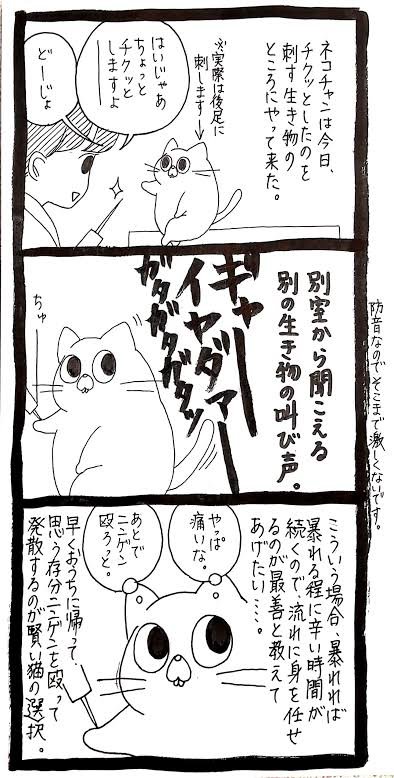 ネコチャンは今日、
チクッとしたのを
刺す生き物の
ところにやって来た。
※実際は後足に
刺します→
はいじゃあ
ちょっと
チクッと
しますよ
どーじょ
別室から聞こえる
別の生き物の叫び声。
ギャー
イヤダァー
ガタガタガタッ
ちゅ
防音なのでそこまで激しくないです。
こういう場合、暴れれば
暴れる程に辛い時間が
続くので、流れに身を任せ
るのが最善と教えて
あげたい…。
やっぱ
痛いな。
あとで
ニンゲン
殴ろっと。
早くおうちに帰って、
思う存分ニンゲンを殴って
発散するのが賢い猫の選択。